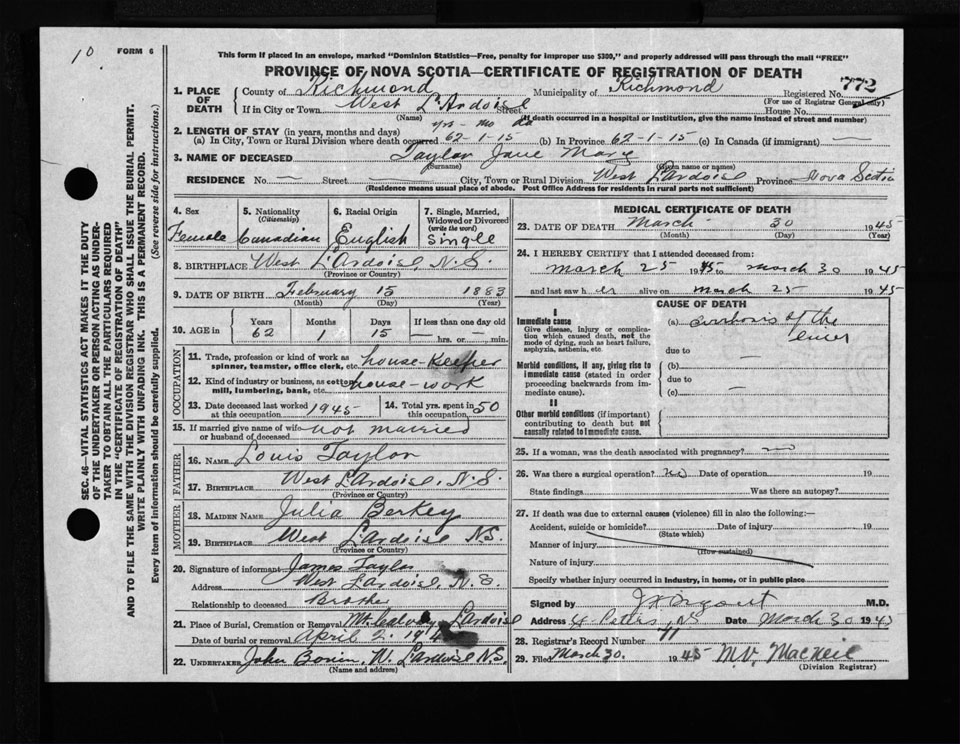 10.
FORM 6
This form if placed in an envelope, marked "Dominion Statistics—Free, penalty for improper use $300," and properly addressed will pass through the mail "FREE"
PROVINCE OF NOVA SCOTIA—CERTIFICATE OF REGISTRATION OF DEATH
SEC. 46—VITAL STATISTICS ACT MAKES IT THE DUTY
OF THE UNDERTAKER OR PERSON ACTING AS UNDER-
TAKER TO OBTAIN ALL THE PARTICULARS REQUIRED
IN THE "CERTIFICATE OF REGISTRATION OF DEATH"
AND TO FILE THE SAME WITH THE DIVISION REGISTRAR WHO SHALL ISSUE THE BURIAL PERMIT.
WRITE PLAINLY WITH UNFADING INK. THIS IS A PERMANENT RECORD.
Every item of Information should be carefully supplied. (See reverse side for instructions.)
1. PLACE OF DEATH
County of Richmond Municipality of Richmond Registered No. 772
(For use of Registrar General only)
If in City or Town West L'Ardoise Street House No.
(Name) (If death occurred in a hospital or institution, give the name instead of street and number)
2. LENGTH OF STAY (in years, months and days) yrs - mo da
(a) In City, Town or Rural Division where death occurred 62-1-15 (b) In Province 62-1-15 (c) In Canada (if immigrant)
3. NAME OF DECEASED Taylor Jane Mary
(Surname) (Given name or names)
RESIDENCE No. — Street — City, Town or Rural Division West Lardoise Province Nova Scotia
(Residence means usual place of abode. Post Office Address for residents in rural parts not sufficient)
4. Sex
Female
5. Nationality
(Citizenship)
Canadian
6. Racial Origin
English
7. Single, Married,
Widowed or Divorced
(write the word)
Single
8. BIRTHPLACE West L'Ardoise, N.S.
(Province or Country)
9. DATE OF BIRTH February 15 1883
(Month) (Day) (Year)
10. AGE in
Years Months Days If less than one day old
62 1 15 — hrs. or — min.
OCCUPATION
11. Trade, profession or kind of work as
spinner, teamster, office clerk, etc. house-keeper
12. Kind of industry or business, as cotton
mill, lumbering, bank, etc. house-work
13. Date deceased last worked
at this occupation 1945
14. Total yrs. spent in
this occupation 50
15. If married give name of wife
or husband of deceased not married
FATHER
16. Name Louis Taylor
17. Birthplace West Lardoise, N.S.
(Province or Country)
MOTHER
18. Maiden Name Julia Berkey
19. Birthplace West L'Ardoise N.S.
(Province or Country)
20. Signature of informant James Taylor
Address West Lardoise, N.S.
Relationship to deceased Brother
21. Place of Burial, Cremation or Removal Mt. Calvary Lardoise
Date of burial or removal April 2, 19
22. Undertaker John W. Lardoise N.S.
(Name and address)
MEDICAL CERTIFICATE OF DEATH
23. DATE OF DEATH March 30 1945
(Month) (Day) (Year)
24. I HEREBY CERTIFY that I attended deceased from:
march 25 1945 to march 30 1945
and last saw her alive on march 25 1945
CAUSE OF DEATH
I
Immediate cause
Give disease, injury or complica-
tion which caused death, not the
mode of dying, such as heart failure,
asphyxia, asthenia, etc.
(a) cirrhosis of the
liver
due to
Morbid conditions, if any, giving rise to
immediate cause (stated in order
proceeding backwards from im-
mediate cause).
(b) —
due to
(c) —
II
Other morbid conditions (if important)
contributing to death but not
causally related to Immediate cause.
25. If a woman, was the death associated with pregnancy? no
26. Was there a surgical operation? no Date of operation 19
State findings Was there an autopsy?
27. If death was due to external causes (violence) fill in also the following:—
Accident, suicide or homicide? Date of injury 19
(State which)
Manner of injury
(How sustained)
Nature of injury
Specify whether injury occurred in industry, in home, or in public place
Signed by M.D.
Address St Peters, N.S Date March 30 1945
28. Registrar's Record Number 11
29. Filed March 30. 1945 M.V. MacNeil
(Division Registrar)